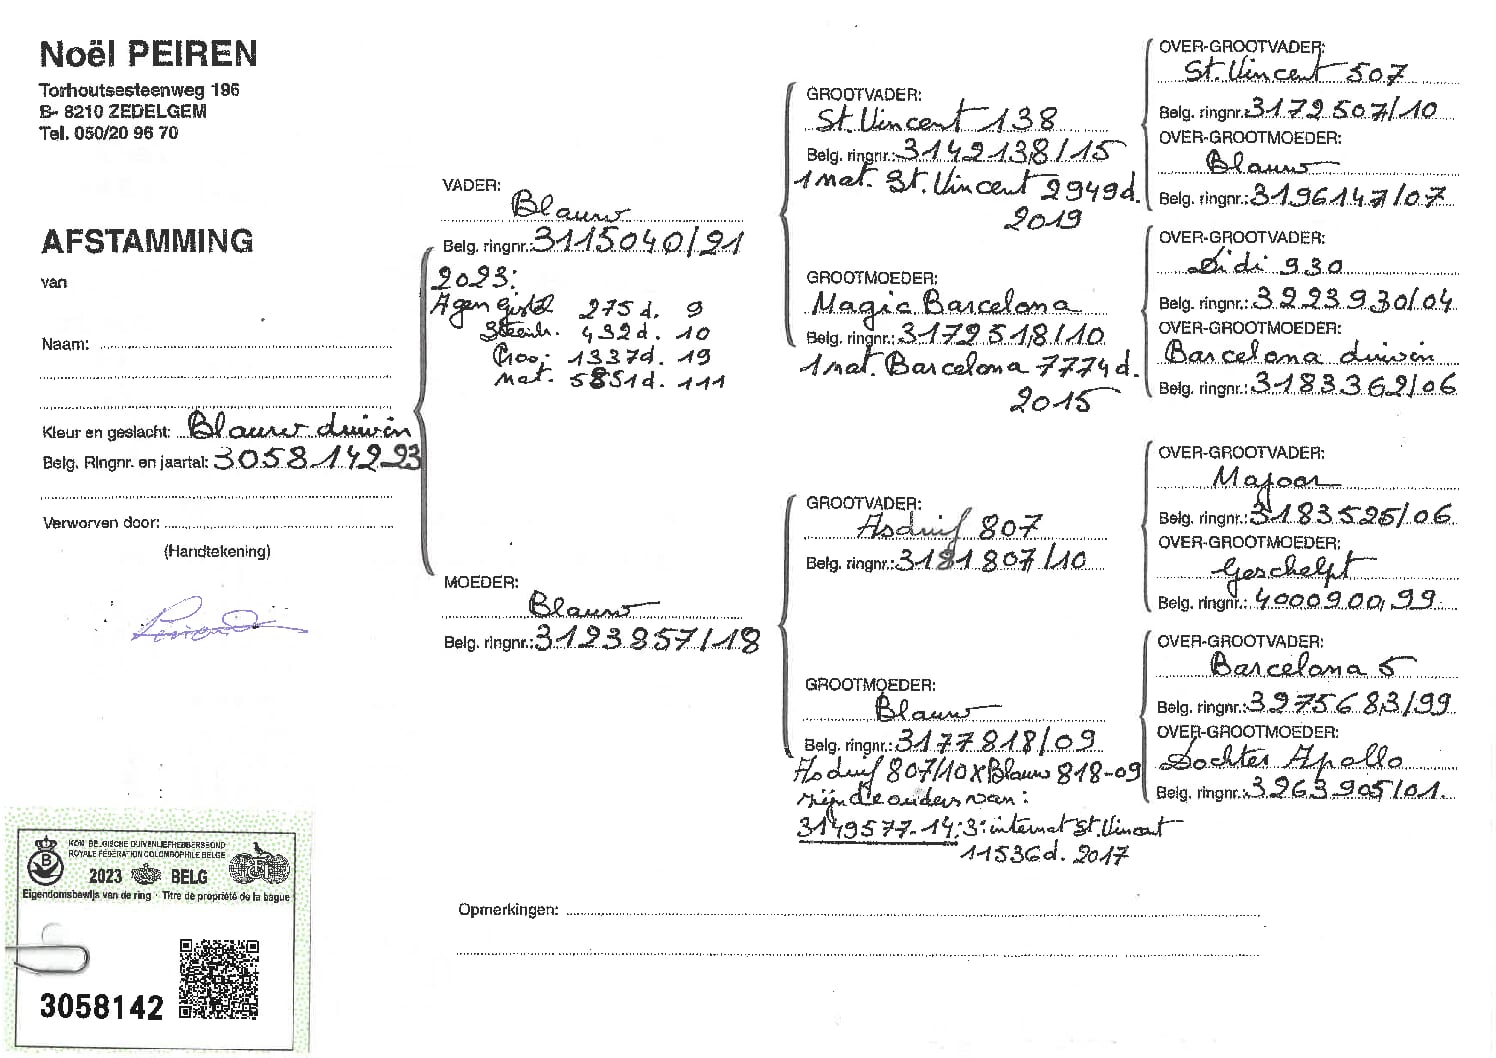 Noël PEIREN
Torhoutsesteenweg 196
B- 8210 ZEDELGEM
Tel. 050/20 96 70
AFSTAMMING
van
Naam:
Kleur en geslacht: Blauw duivin
Belg. Ringnr. en jaartal: 3058142.23
Verworven door:
(Handtekening)
KON. BELGISCHE DUIVENLIEFHEBBERSBOND
ROYALE FÉDÉRATION COLOMBOPHILE BELGE
2023 BELG
Eigendomsbewijs van de ring - Titre de propriété de la bague
3058142
VADER:
Blauw
Belg. ringnr.: 3115040/21
2023:
Agen 275d. 9
432d. 10
1337d. 19
Nat. 5851d. 111
MOEDER:
Blauw
Belg. ringnr.: 3123857/18
GROOTVADER:
St. Vincent 138
Belg. ringnr.: 3142138/15
1 nat. St. Vincent 2949d.
2019
GROOTMOEDER:
Magic Barcelona
Belg. ringnr.: 3172518/10
1 nat. Barcelona 7774d.
2015
GROOTVADER:
Asduif 807
Belg. ringnr.: 3181807/10
GROOTMOEDER:
Blauw
Belg. ringnr.: 3177818/09
Asduif 807/10 X Blauw 818-09
zijn de ouders van:
3149577-14: 3: internat St. Vincent
11536d. 2017
OVER-GROOTVADER:
St. Vincent 507
Belg. ringnr.: 3172507/10
OVER-GROOTMOEDER:
Blauw
Belg. ringnr.: 3196147/07
OVER-GROOTVADER:
Didi 930
Belg. ringnr.: 3223930/04
OVER-GROOTMOEDER:
Barcelona duivin
Belg. ringnr.: 3183362/06
OVER-GROOTVADER:
Majoor
Belg. ringnr.: 3183525/06
OVER-GROOTMOEDER:
Geschelpt
Belg. ringnr.: 4000900/99
OVER-GROOTVADER:
Barcelona 5
Belg. ringnr.: 3275683/99
OVER-GROOTMOEDER:
Dochter Apollo
Belg. ringnr.: 3263905/01
Opmerkingen: